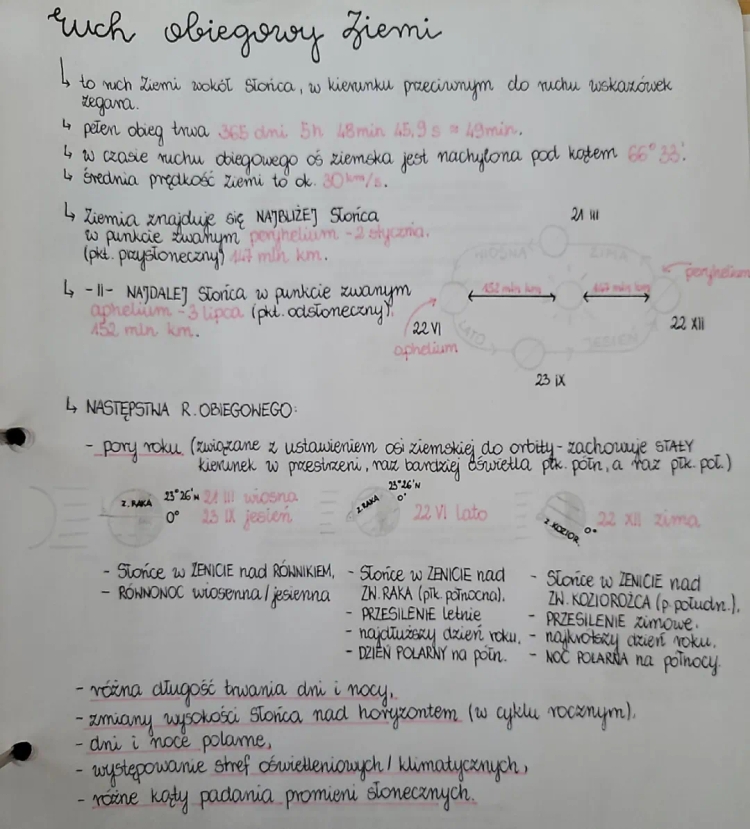 Ruch obiegowy Ziemi
↳ to ruch Ziemi wokół Słońca, w kierunku przeciwnym do ruchu wskazówek
zegara.
↳ pełen obieg trwa 365 dni 5h 48min 45,9 s ≈ 49min.
↳ w czasie ruchu obiegowego oś ziemska jest nachylona pod kątem 66° 33'.
↳ średnia prędkość Ziemi to ok. 30 km/s.
↳ Ziemia znajduje się NAJBLIŻEJ Słońca
w punkcie zwanym peryhelium - 2 stycznia.
(pkt. przysłoneczny) 147 mln km.
↳ -II- NAJDALEJ Słońca w punkcie zwanym
aphelium - 3 lipca (pkt. odsłoneczny).
152 mln km.
21 III
WIOSNA ZIMA
peryhelium
152 mln km 147 mln km
22 VI
22 XII
LATO JESIEŃ
aphelium
23 IX
↳ NASTĘPSTWA R. OBIEGOWEGO:
- pory roku (związane z ustawieniem osi ziemskiej do orbity - zachowuje STAŁY
kierunek w przestrzeni, raz bardziej oświetla płk. półn, a raz płk. poł.)
Z. RAKA 23°26'N 21 III wiosna
0° 23 IX jesień
Z. RAKA 23°26'N
0° 22 VI lato
Z. KOZIOR. 0° 22 XII zima
- Słońce w ZENICIE nad RÓWNIKIEM,
- RÓWNONOC wiosenna / jesienna
- Słońce w ZENICIE nad
ZW. RAKA (płk. północna),
- PRZESILENIE letnie
- najdłuższy dzień roku,
- DZIEŃ POLARNY na półn.
- Słońce w ZENICIE nad
ZW. KOZIOROŻCA (p. połudn.),
- PRZESILENIE zimowe,
- najkrótszy dzień roku,
- NOC POLARNA na północy.
- różna długość trwania dni i nocy,
- zmiany wysokości Słońca nad horyzontem (w cyklu rocznym),
- dni i noce polarne,
- występowanie stref oświetleniowych / klimatycznych,
- różne kąty padania promieni słonecznych.